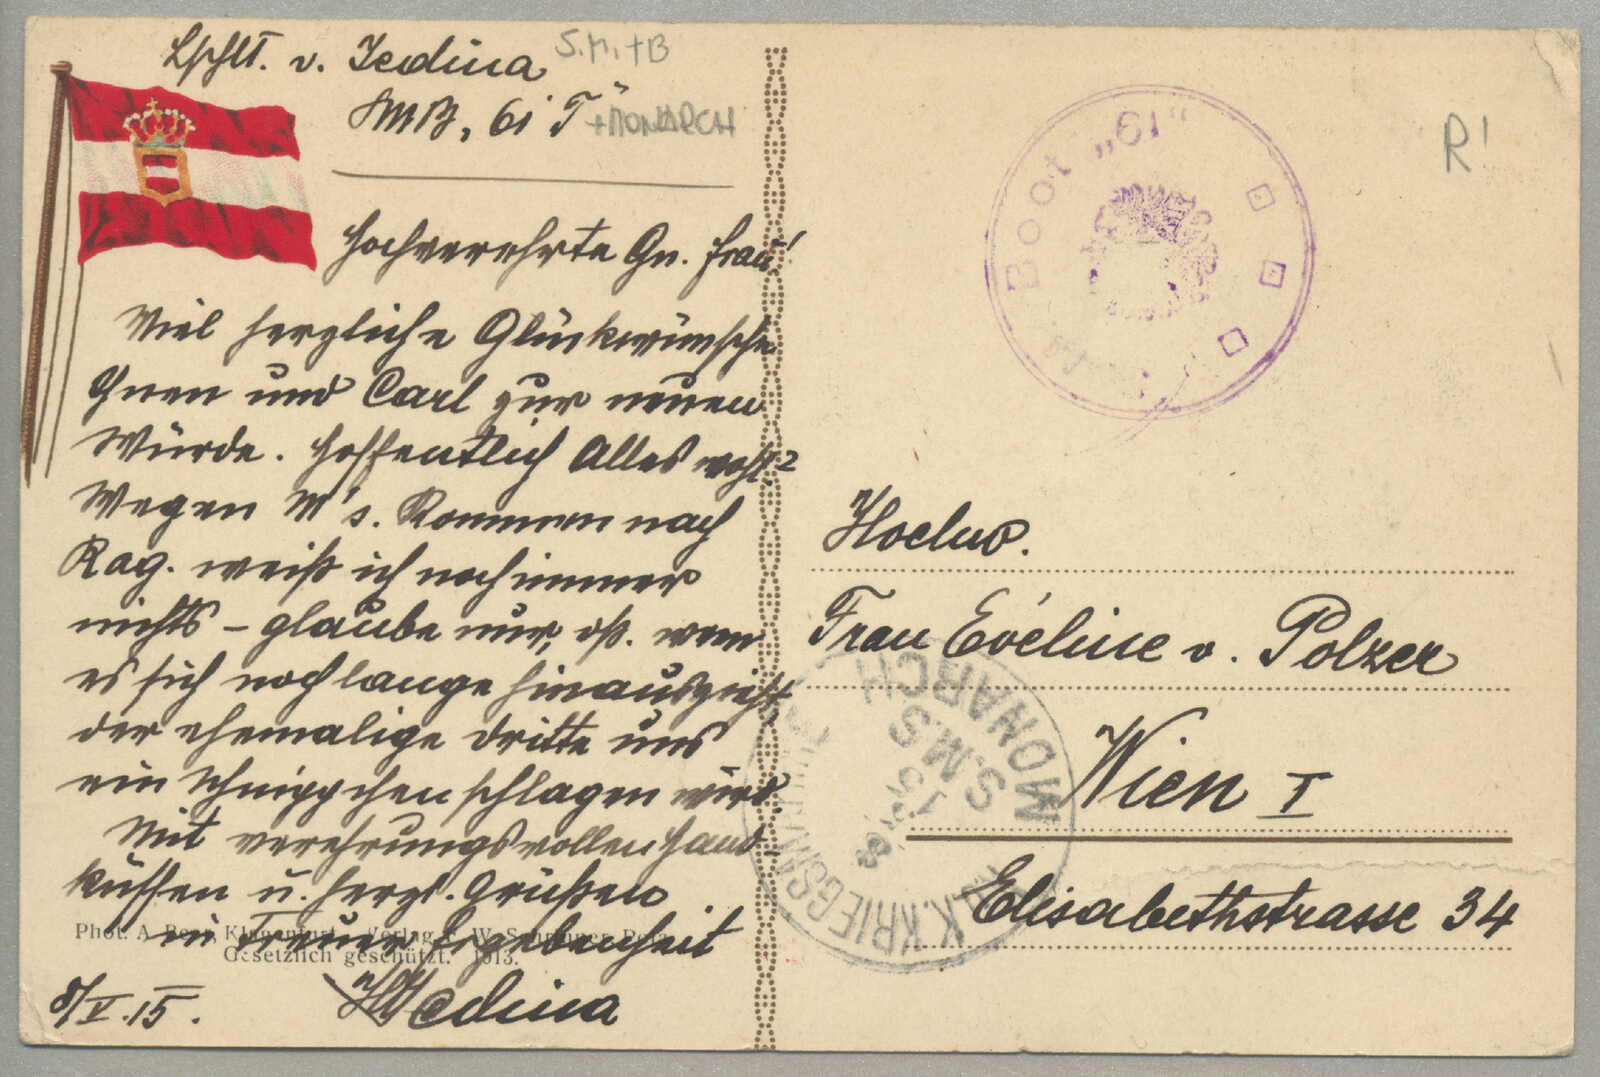 Lschlt. v. Jedina
S.M.+B
SMB. 61 T
+MONARCH
Hochverehrte Gn. Frau!
Viel herzliche Glückwünsche
Ihnen und Carl zur neuen
Würde. Hoffentlich Alles wohl?
Wegen M's. Kommen nach
Rag. weiß ich noch immer
nichts – glaube nur, daß. wenn
es sich noch lange hinauszieht,
der ehemalige Dritte uns
ein Schnippchen schlagen wird.
Mit verehrungsvollen Hand-
küssen u. herzl. Grüßen
in treuer Ergebenheit
Jedina
8/V.15.
Phot. A. Klagenfurt. Verlag W. Schrinner, Pola
Gesetzlich geschützt. 1913.
Boot „61"
R!
Hochw.
Frau Evéline v. Polzer
Wien I
Elisabethstrasse 34
K.K. KRIEGSMARINE
S.M.S.
MONARCH